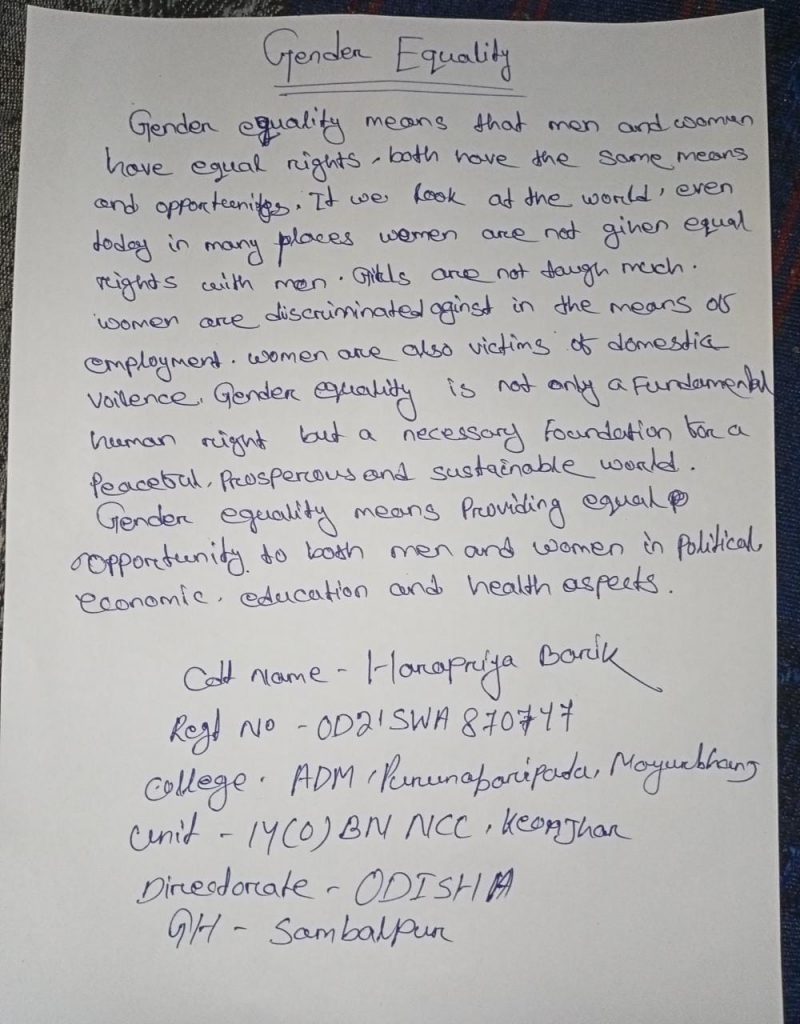 Gender Equality
Gender equality means that men and women
have equal rights, both have the same means
and opportunities. If we look at the world, even
today in many places women are not given equal
rights with men. Girls are not taugh much.
women are discriminated aginst in the means of
employment. women are also victims of domestic
voilence. Gender equality is not only a Fundamental
human right but a necessary foundation for a
Peaceful, Prosperous and sustainable world.
Gender equality means Providing equal
opportunity to both men and women in Political,
economic, education and health aspects.
Cdt Name - Harapriya Barik
Regd No - OD21SWA870747
College. ADM, Purunabaripada, Mayurbhanj
Unit - 14(O) BN NCC, Keonjhar
Directorate - ODISHA
GH - Sambalpur